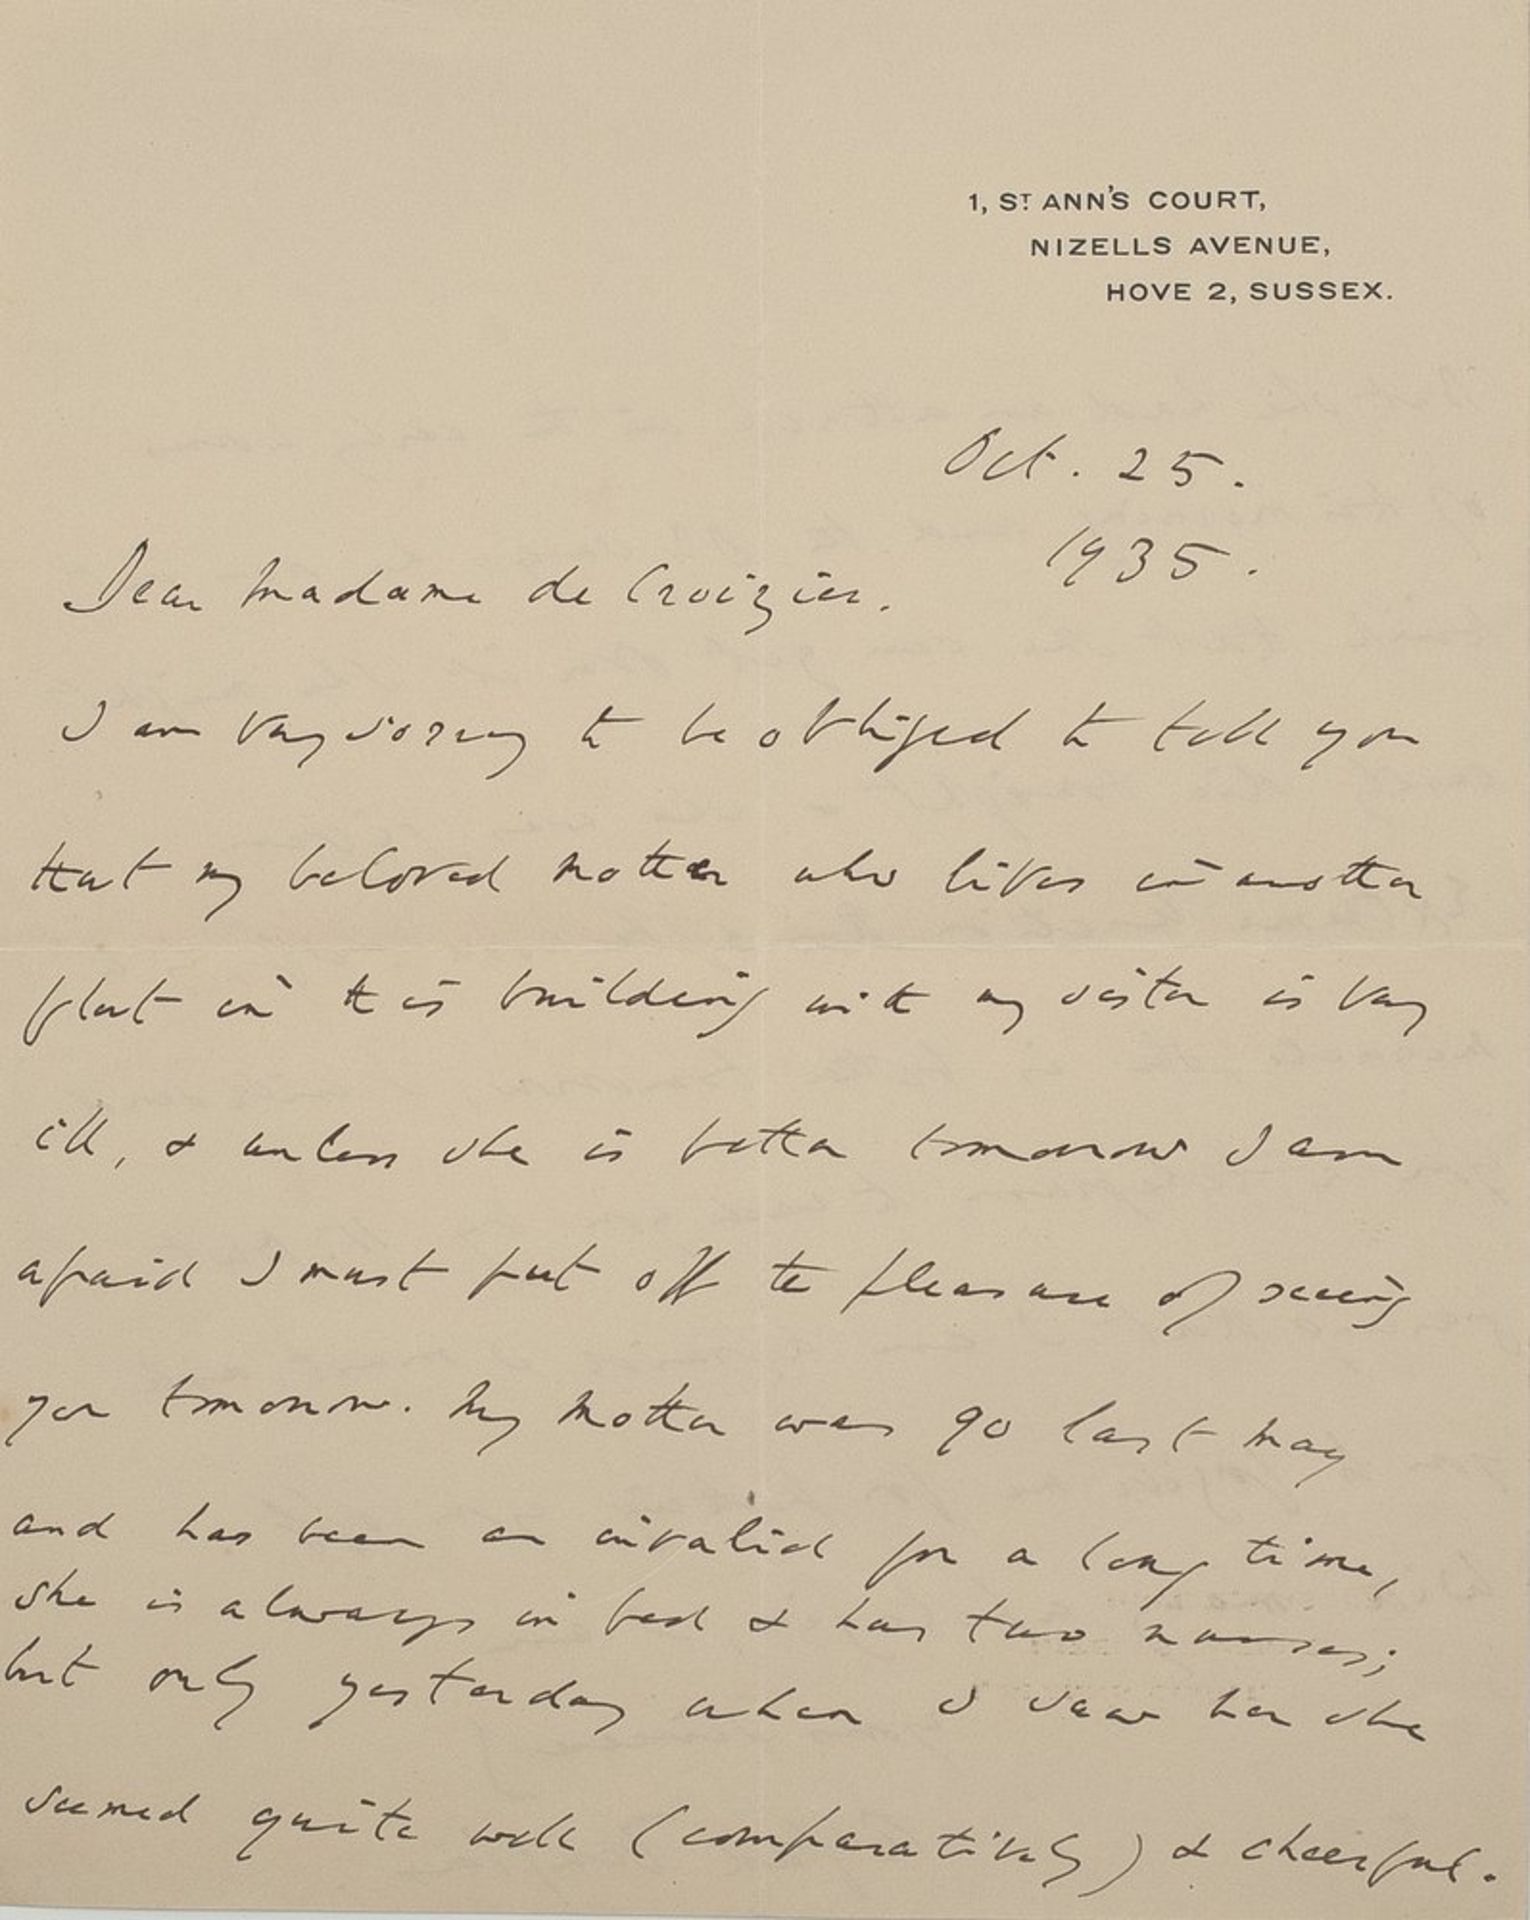 1, ST ANN'S COURT,
NIZELLS AVENUE,
HOVE 2, SUSSEX.
Oct. 25.
1935.
Dear Madame de Croizier.
I am very sorry to be obliged to tell you
that my beloved mother who lives in another
flat in this building with my sister is very
ill, & unless she is better tomorrow I am
afraid I must put off the pleasure of seeing
you tomorrow. My mother was 90 last May
and has been an invalid for a long time,
she is always in bed & has two nurses;
but only yesterday when I saw her she
seemed quite well (comparatively) & cheerful.